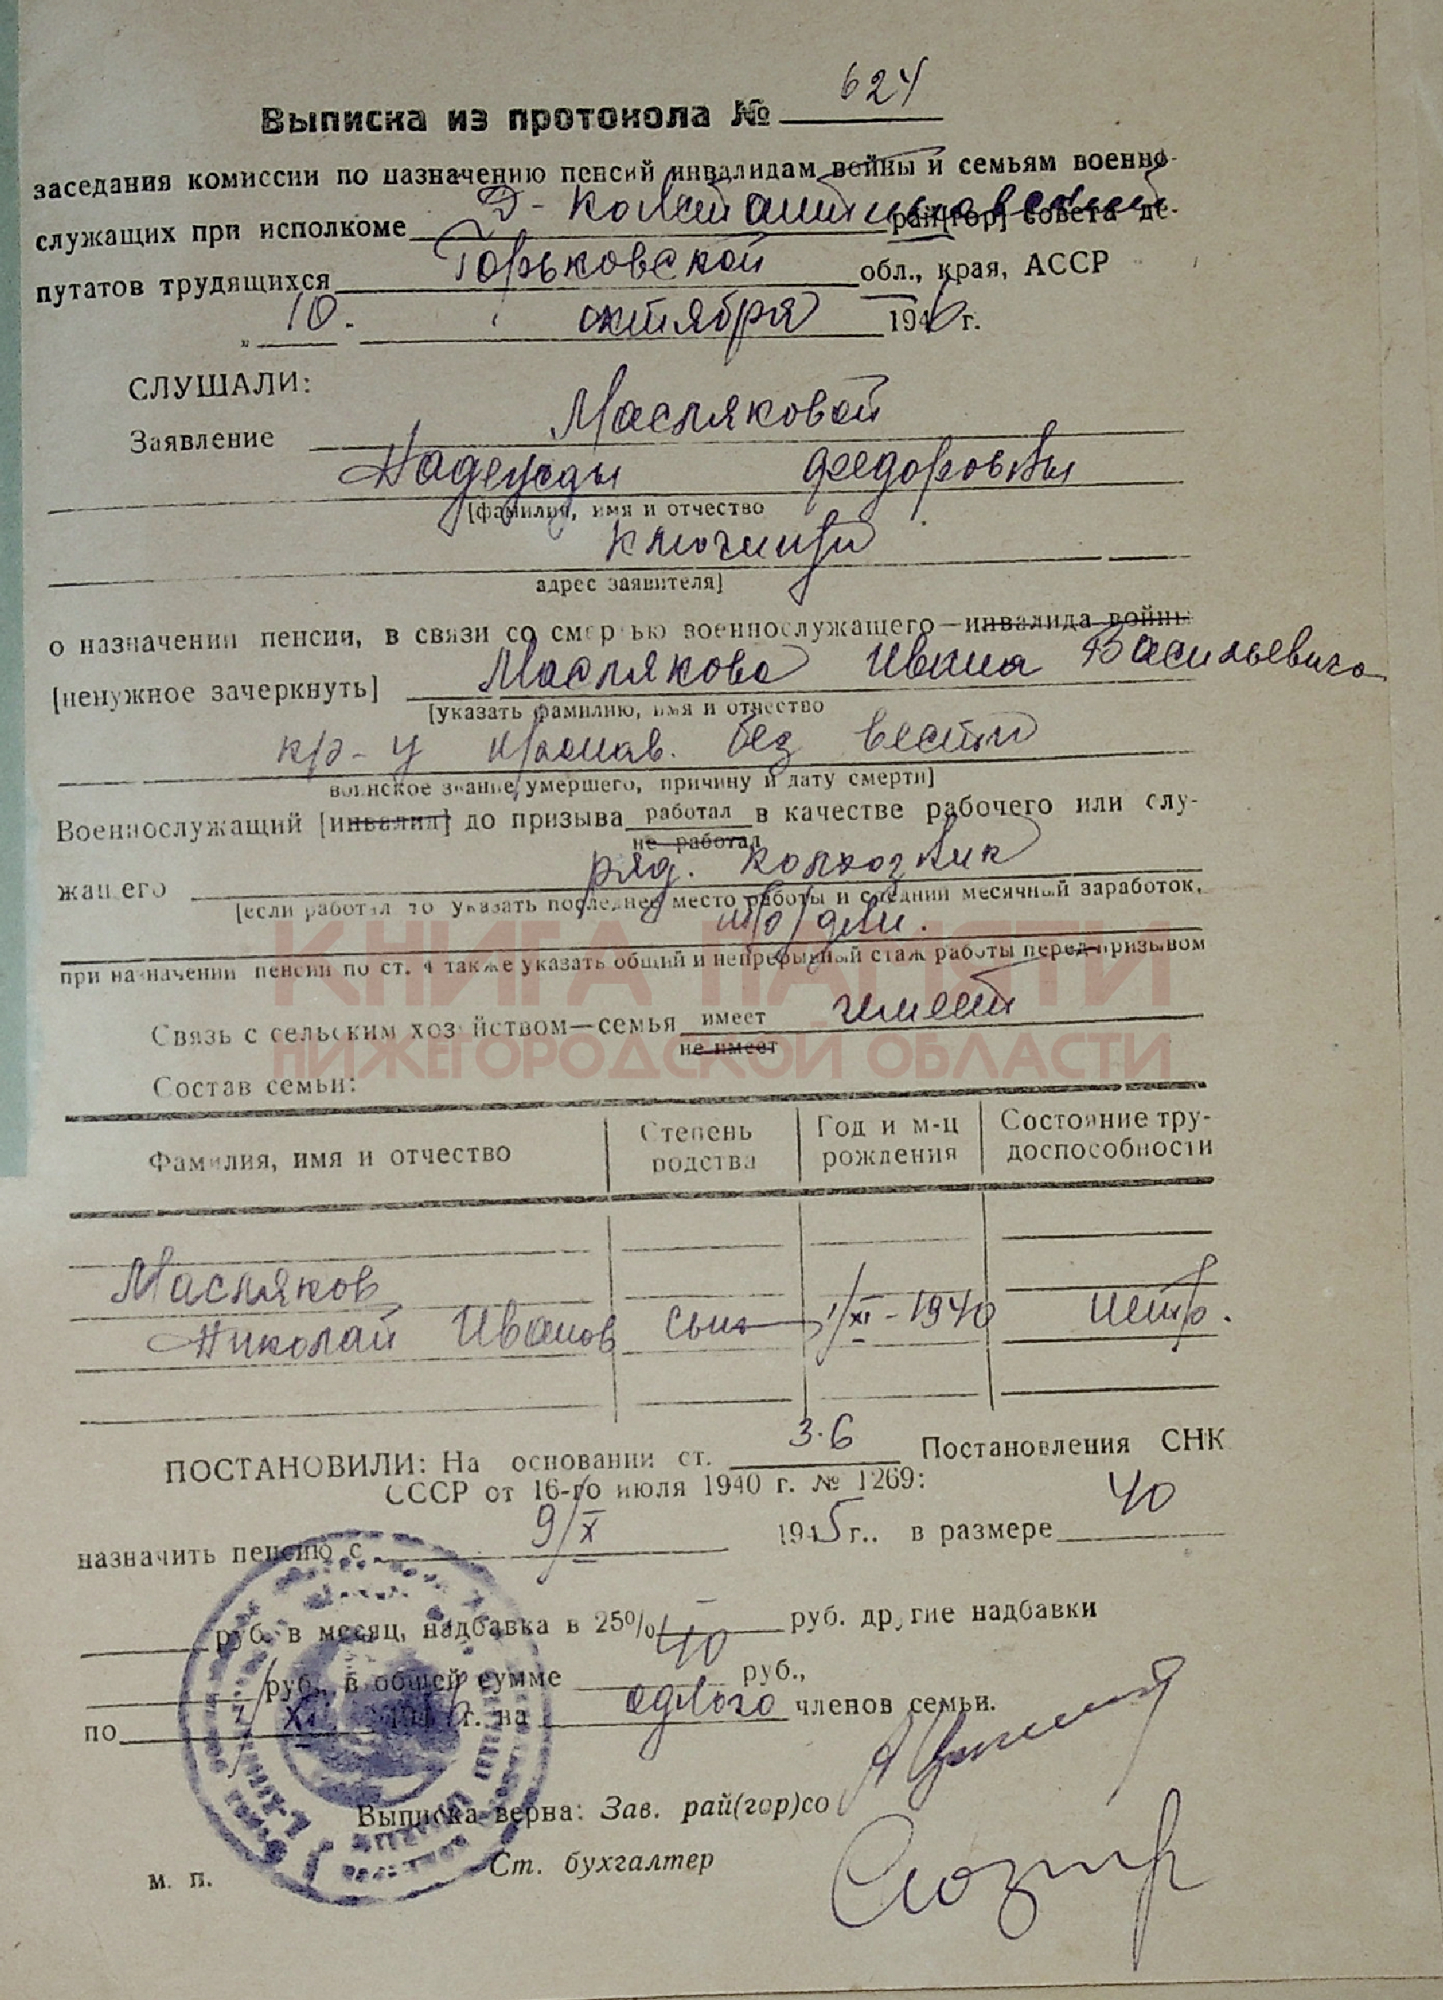 Выписка из протокола № 624
заседания комиссии по назначению пенсий инвалидам войны и семьям военно-
служащих при исполкоме Д-Константиновский рай[гор] совета де-
путатов трудящихся Горьковской обл., края, АССР
„ 10. октября 1946 г.
СЛУШАЛИ:
Заявление Масляковой
Надежды Федоровны
[фамилия, имя и отчество
Ключищи
адрес заявителя]
о назначении пенсии, в связи со смертью военнослужащего—инвалида войны
[ненужное зачеркнуть] Маслякова Ивана Васильевича
[указать фамилию, имя и отчество
кр-ц пропав. без вести
воинское звание умершего, причину и дату смерти]
Военнослужащий [инвалид] до призыва работал в качестве рабочего или слу-
не работал
жащего ряд. колхозник
[если работал то указать последнее место работы и средний месячный заработок,
тр/дни.
при назначении пенсии по ст. 4 также указать общий и непрерывный стаж работы перед призывом
КНИГА ПАМЯТИ
НИЖЕГОРОДСКОЙ ОБЛАСТИ
Связь с сельским хозяйством—семья имеет имеет
не имеет
Состав семьи:
Фамилия, имя и отчество Степень родства Год и м-ц рождения Состояние тру-
доспособности
Масляков
Николай Иванов сын 1/XI-1940 нетр.
ПОСТАНОВИЛИ: На основании ст. 3.6 Постановления СНК
СССР от 16-го июля 1940 г. № 1269:
назначить пенсию с 9/X 1945 г.. в размере 40
руб. в месяц, надбавка в 25% — руб. другие надбавки
руб., в общей сумме 40 руб.,
по 1/XI 1956 г. на одного членов семьи.
Выписка верна: Зав. рай(гор)со
Ст. бухгалтер
м. п.